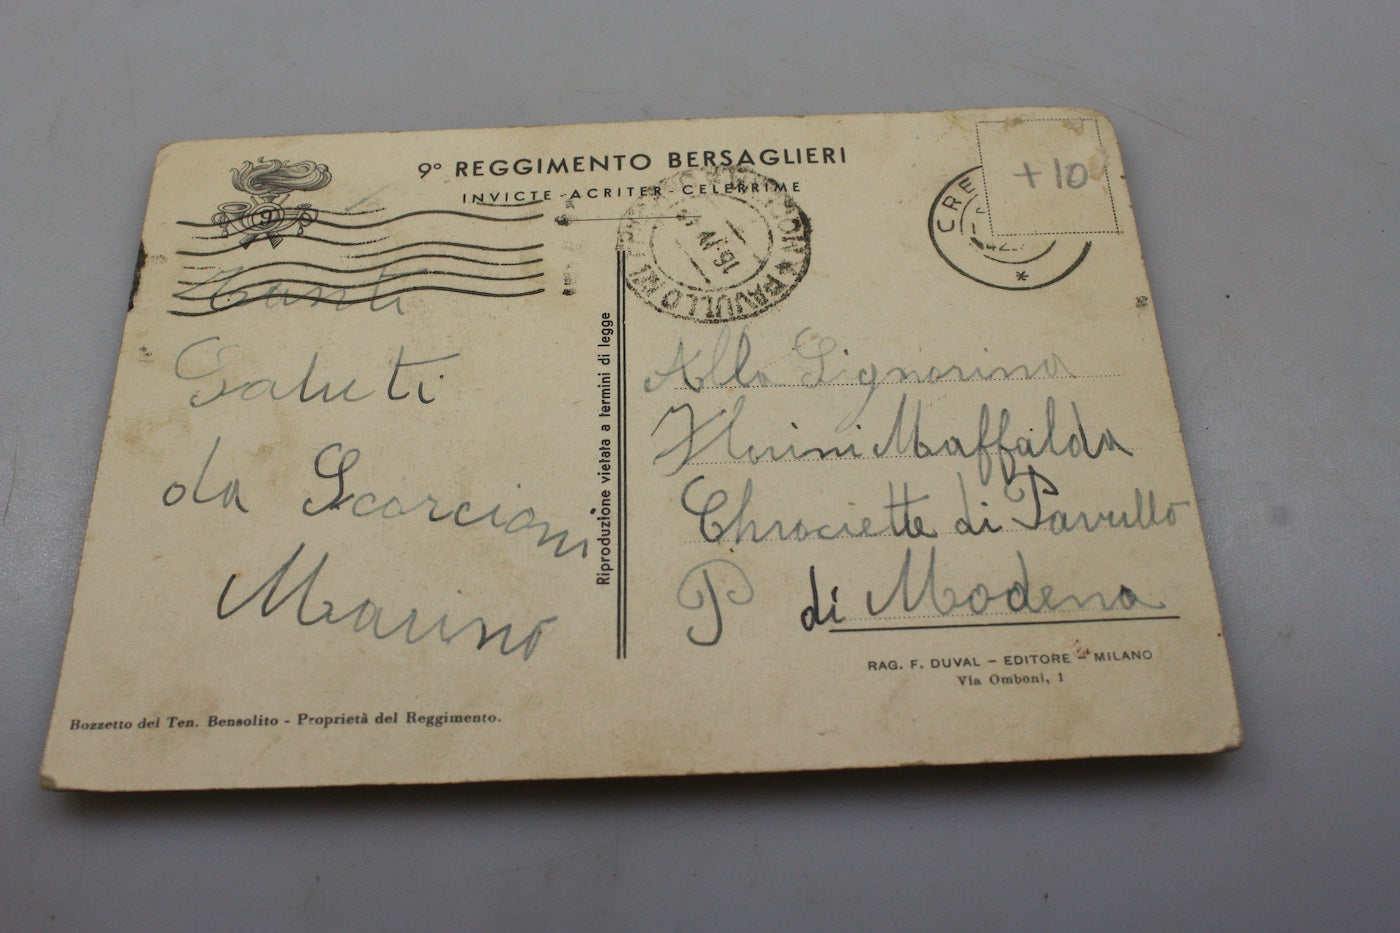 9° REGGIMENTO BERSAGLIERI
INVICTE-ACRITER-CELERRIME
9
+10
CRE
PAVULLO NEL
Tanti
Saluti
da Scorcioni
Marino
Riproduzione vietata a termini di legge
Alla Signorina
Florini Maffalda
Chrociette di Pavullo
P di Modena
RAG. F. DUVAL – EDITORE – MILANO
Via Omboni, 1
Bozzetto del Ten. Bensolito - Proprietà del Reggimento.